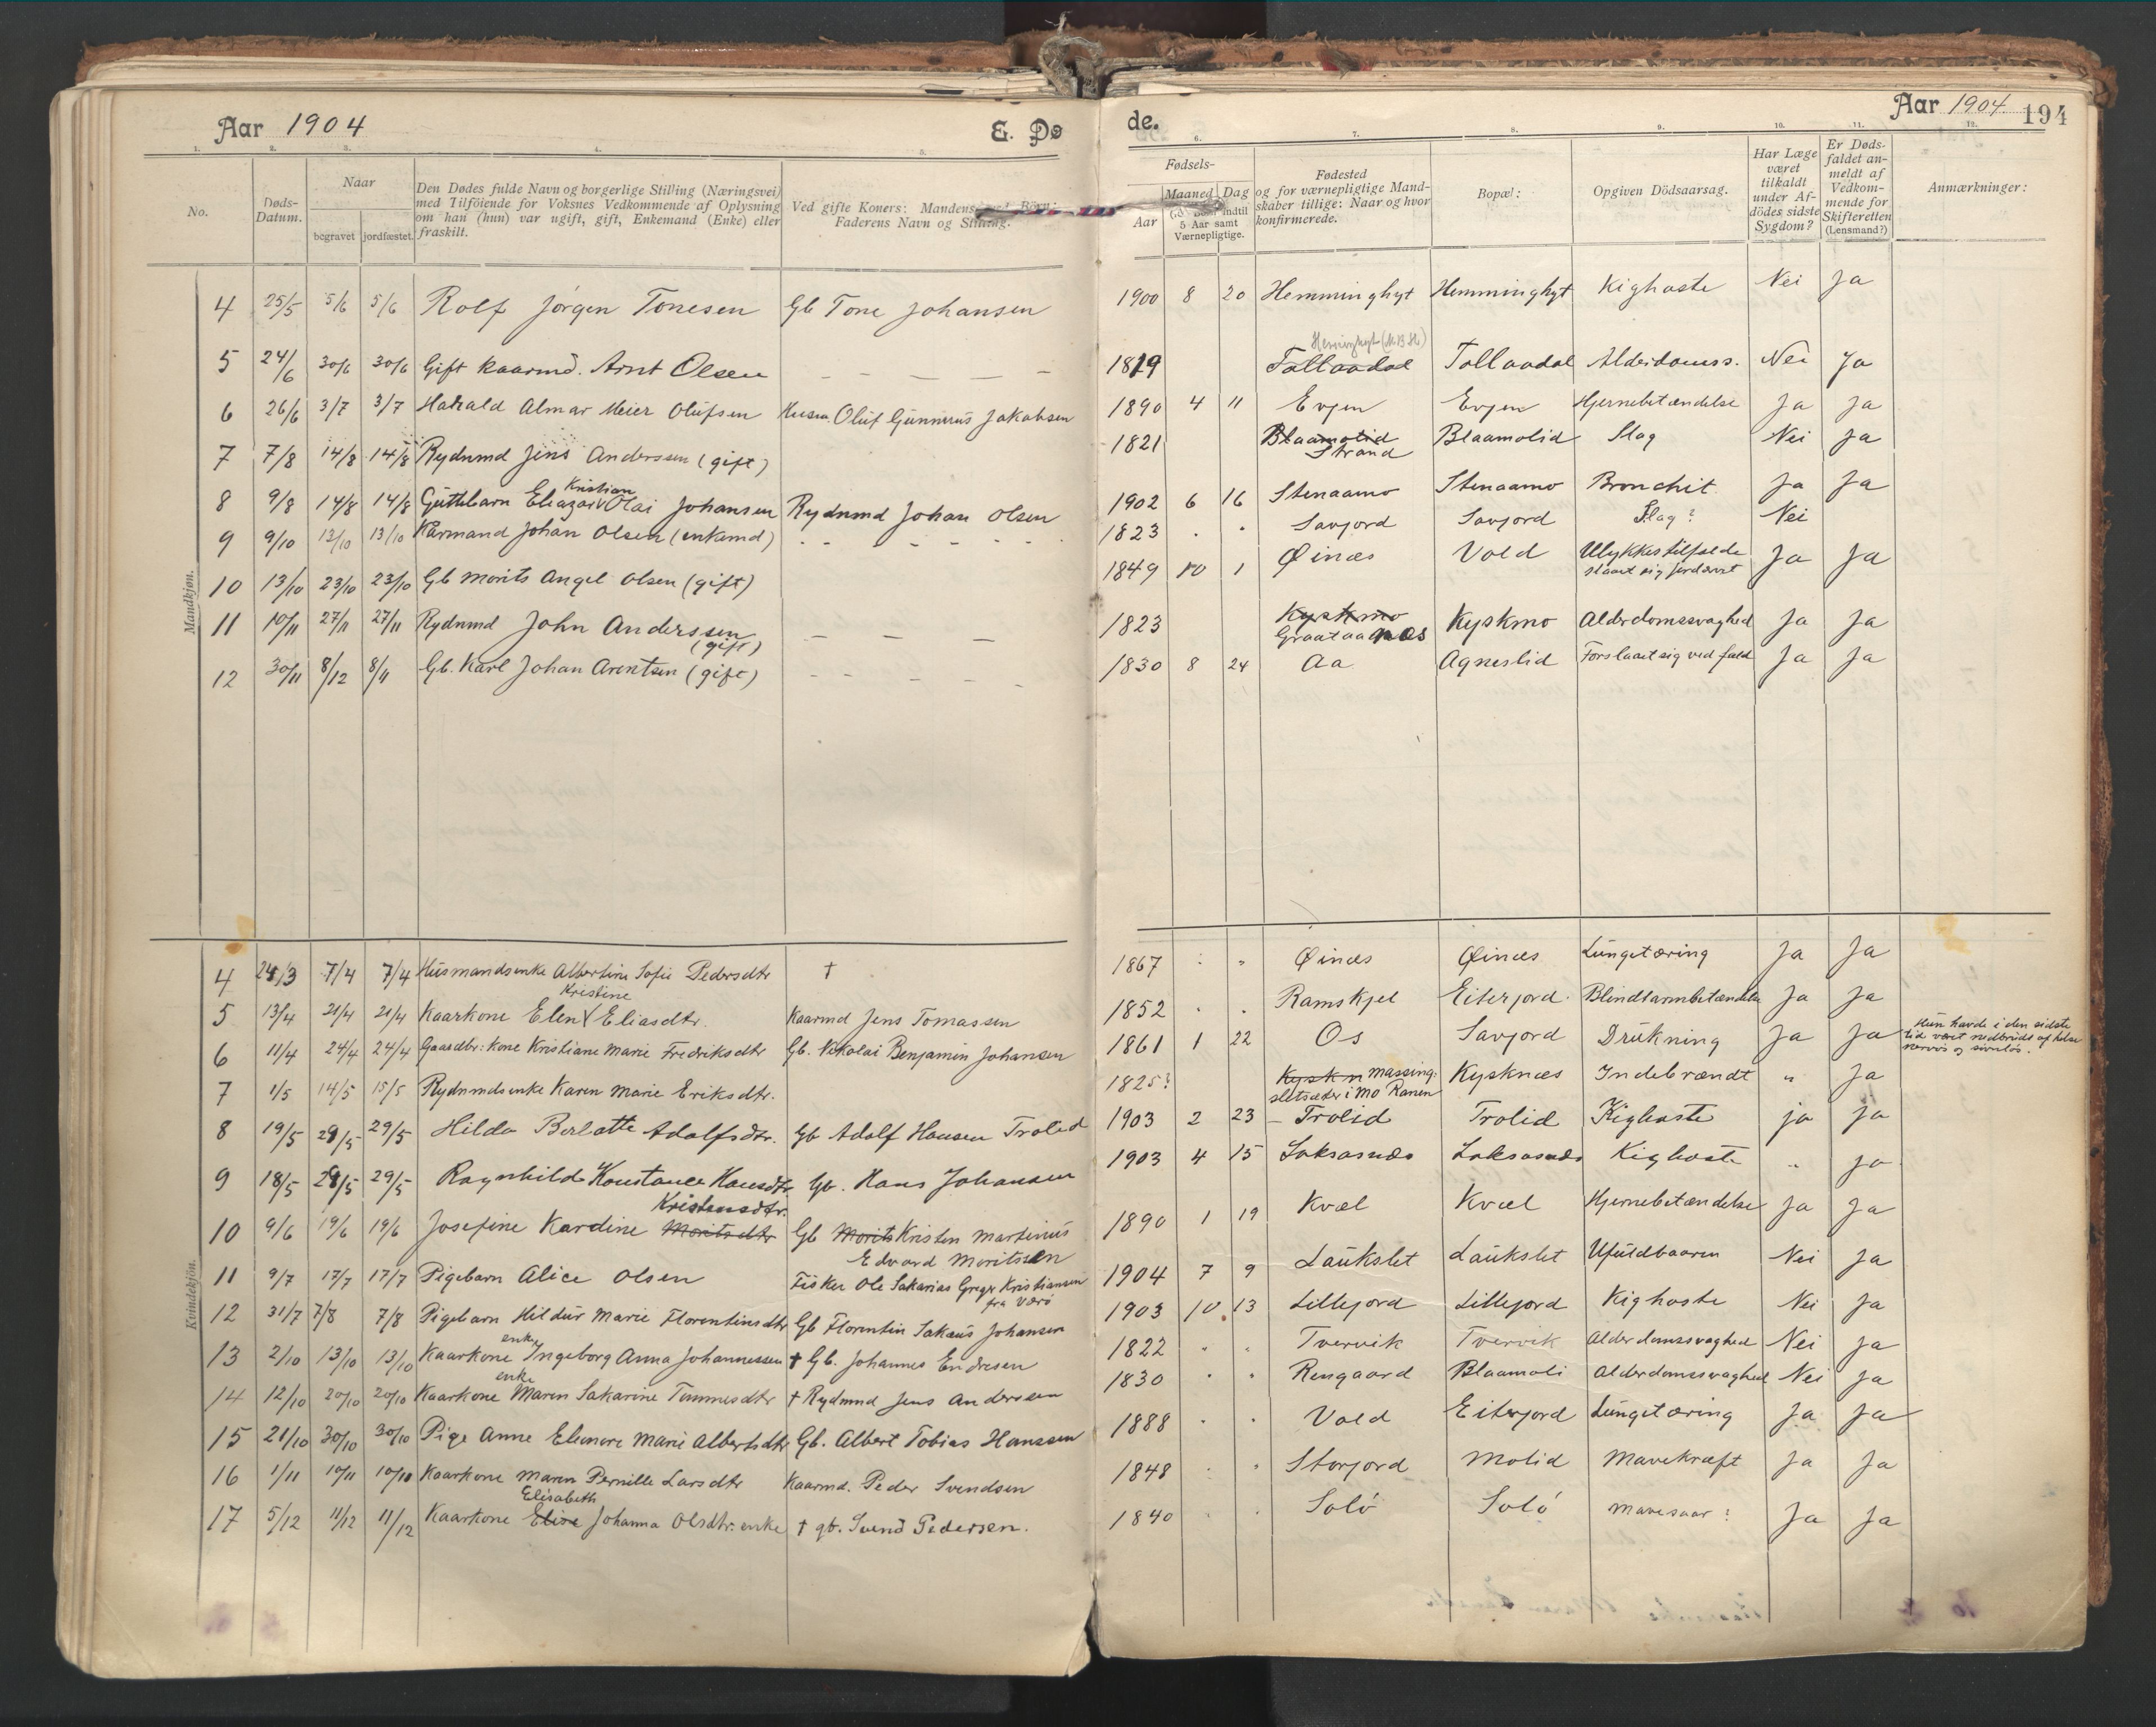 Aar 1904 E. Dø
de. Aar 1904. 194
1. 2. 3. 4. 5. 6. 7. 8. 9. 10. 11. 12.
No.
Døds-Datum.
Naar
begravet jordfæstet
Den Dødes fulde Navn og borgerlige Stilling (Næringsvei) med Tilföiende for Voksnes Vedkommende af Oplysning om han (hun) var ugift, gift, Enkemand (Enke) eller fraskilt.
Ved gifte Koners: Mandens, ved Börn: Faderens Navn og Stilling.
Fødsels-
Aar
Maaned Dag
Börn indtil 5 Aar samt Værnepligtige.
Fødested og for værnepligtige Mandskaber tillige: Naar og hvor konfirmerede.
Bopæl:
Opgiven Dödsaarsag.
Har Læge været tilkaldt under Afdödes sidste Sygdom?
Er Dødsfaldet anmeldt af Vedkommende for Skifteretten (Lensmand?)
Anmærkninger:
Mandkjøn.
4 25/5 5/6 5/6 Rolf Jörgen Tonesen Gb Tone Johansen 1900 8 20 Hemminghyt Hemminghyt Kighoste Nei Ja
Hemminghyt (M.B.H.)
5 24/6 30/6 30/6 Gift Kaarmd. Arnt Olsen — — — — — 1819 Tollaadal Tollaadal Alderdomss. Nei Ja
6 26/6 3/7 3/7 Harald Almar Meier Olufsen Husm. Oluf Gunnerus Jakobsen 1890 4 11 Evjen Evjen Hjernebetændelse Ja Ja
7 7/8 14/8 14/8 Rydnmd Jens Anderssen (gift) 1821 Blaamolid Blaamolid Slag Nei Ja
Strand
Kristian
8 9/8 14/8 14/8 Guttebarn Eleazar Olai Johansen Rydnmd Johan Olsen 1902 6 16 Stenaamo Stenaamo Bronchit Ja Ja
9 9/10 13/10 13/10 Karmand Johan Olsen (enkemd) - - - - - - 1823 . " Savjord Savjord Slag? Nei
10 13/10 23/10 23/10 Gb Morits Angel Olsen (gift) 1849 10 1 Øinæs Vold Ulykkestilfælde Ja Ja
slaaet sig fordærvet
11 10/11 27/11 27/11 Rydnmd John Anderssen — — — 1823 Kyskmo Kyskmo Alderdomssvaghed Ja Ja
(gift) Graataanæs
12 30/11 8/12 8/11 Gb. Karl Johan Arentsen (gift) - - - - - 1830 8 24 Aa Agneslid Forslaaet sig ved fald Ja Ja
Kvindekjön.
4 24/3 7/4 7/4 Husmandsenke Albertine Sofie Pedersdtr † 1867 . " Øinæs Øinæs Lungetæring Ja Ja
Kristine
5 13/4 21/4 21/4 Kaarkone Elen Eliasdtr. Kaarmd Jens Tomassen 1852 . . Ramskjel Eiterjord Blindtarmbetændelse Ja Ja
6 11/4 24/4 24/4 Gaardbr: Kone Kristiane Marie Fredriksdtr Gb. Nikolai Benjamin Johansen 1861 1 22 Os Savjord Drukning Ja Ja Hun havde i den sidste
tid været nedbrudt af helse
nervøs og sövnlös.
7 1/5 14/5 15/5 Rydnmdsenke Karen Marie Eriksdtr. 1825? Kyskn Massing- Kysknæs Indebrændt " Ja
sletsæter i Mo Ranen
8 19/5 29/5 29/5 Hilda Berlotte Adolfsdtr. Gb Adolf Hansen Trolid 1903 2 23 Trolid Trolid Kighoste ja ja
9 18/5 29/5 29/5 Ragnhilda Konstance Hansdtr Gb. Hans Johansen 1903 4 15 Laksasnæs Laksasnæs Kighoste " ja
Kristensdtr.
10 9/6 19/6 19/6 Josefine Kardine Moritsdtr Gb Morits Kristen Martinus 1890 1 19 Kvæl Kvæl Hjernebetændelse Ja Ja
Edvard Moritsen
11 9/7 17/7 17/7 Pigebarn Alice Olsen Fisker Ole Sakarias Greger Kristiansen 1904 7 9 Laukslet Laukslet Ufuldbaaren Nei Ja
fra Værö
12 31/7 7/8 7/8 Pigebarn Hildur Marie Florentinsdtr Gb Florentin Sakæus Johansen 1903 10 13 Lillejord Lillejord Kighoste Nei Ja
enke
13 2/10 13/10 13/10 Kaarkone Ingeborg Anna Johannessen † Gb. Johannes Endresen 1822 " " Tvervik Tvervik Alderdomssvaghed Nei Ja
enke
14 12/10 20/10 20/10 Kaarkone Maren Sakarine Tommesdtr † Rydnmd Jens Anderssen 1830 " " Rengaard Blaamoli Alderdomssvaghed Nei Ja
15 21/10 30/10 30/10 Pige Anne Elenore Marie Albertsdtr Gb. Albert Tobias Hanssen 1888 . . Vold Eiterjord Lungetæring Ja Ja
16 1/11 10/11 10/11 Kaarkone Maren Pernille Larsdtr Kaarmd. Peder Svendsen 1848 . " Storjord Molid Mavekræft Ja Ja
Elisabeth
17 5/12 11/12 11/12 Kaarkone Elise Johanna Olsdtr. enke † gb. Svend Pedersen. 1840 . . Solö Solö Mavesaar? Ja Ja